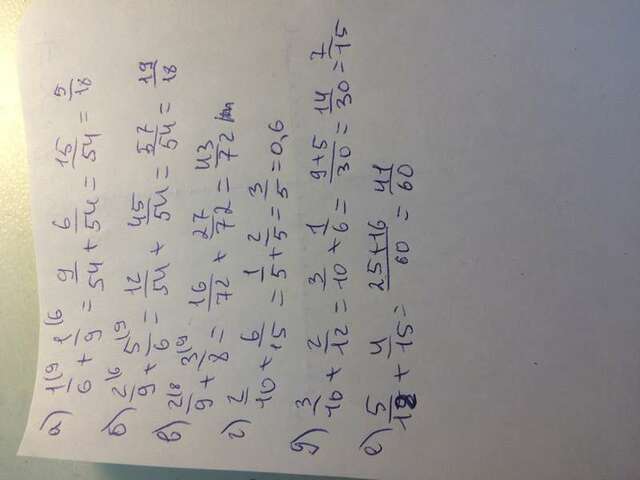 а) 1/6 |9 + 1/9 |6 = 9/54 + 6/54 = 15/54 = 5/18
б) 2/9 |6 + 5/6 |9 = 12/54 + 45/54 = 57/54 = 19/18
в) 2/9 |8 + 3/8 |9 = 16/72 + 27/72 = 43/72
г) 2/10 + 6/15 = 1/5 + 2/5 = 3/5 = 0,6
д) 3/10 + 2/12 = 3/10 + 1/6 = 9+5/30 = 14/30 = 7/15
е) 5/12 + 4/15 = 25+16/60 = 41/60